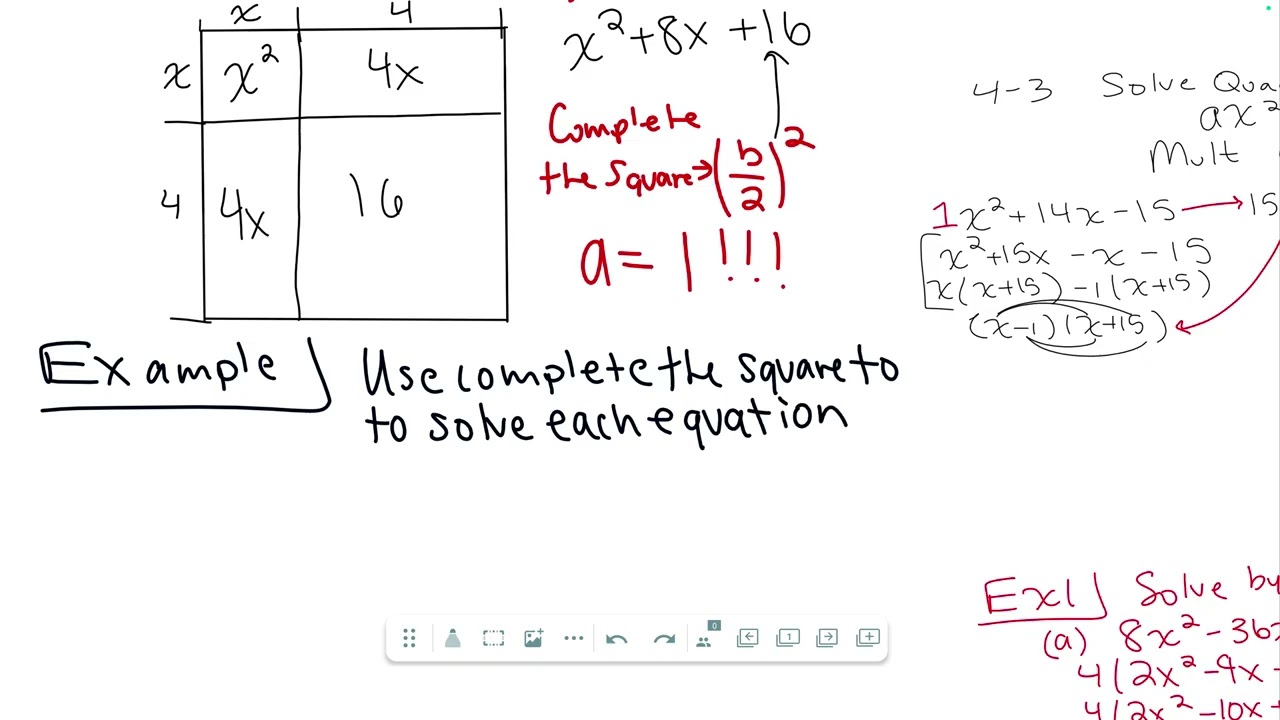 x 4
x x² 4x
4 4x 16
x²+8x +16
Complete
the square→(b/2)²
a = 1 !!!
Example
Use complete the square to
to solve each equation
4-3 Solve Qua
ax²
Mult
1x²+14x-15→15
x²+15x -x -15
x(x+15) -1(x+15)
(x-1)(x+15)
Ex1 Solve by
(a) 8x²-36x
4(2x²-9x-
4(2x²-10x+
0
1